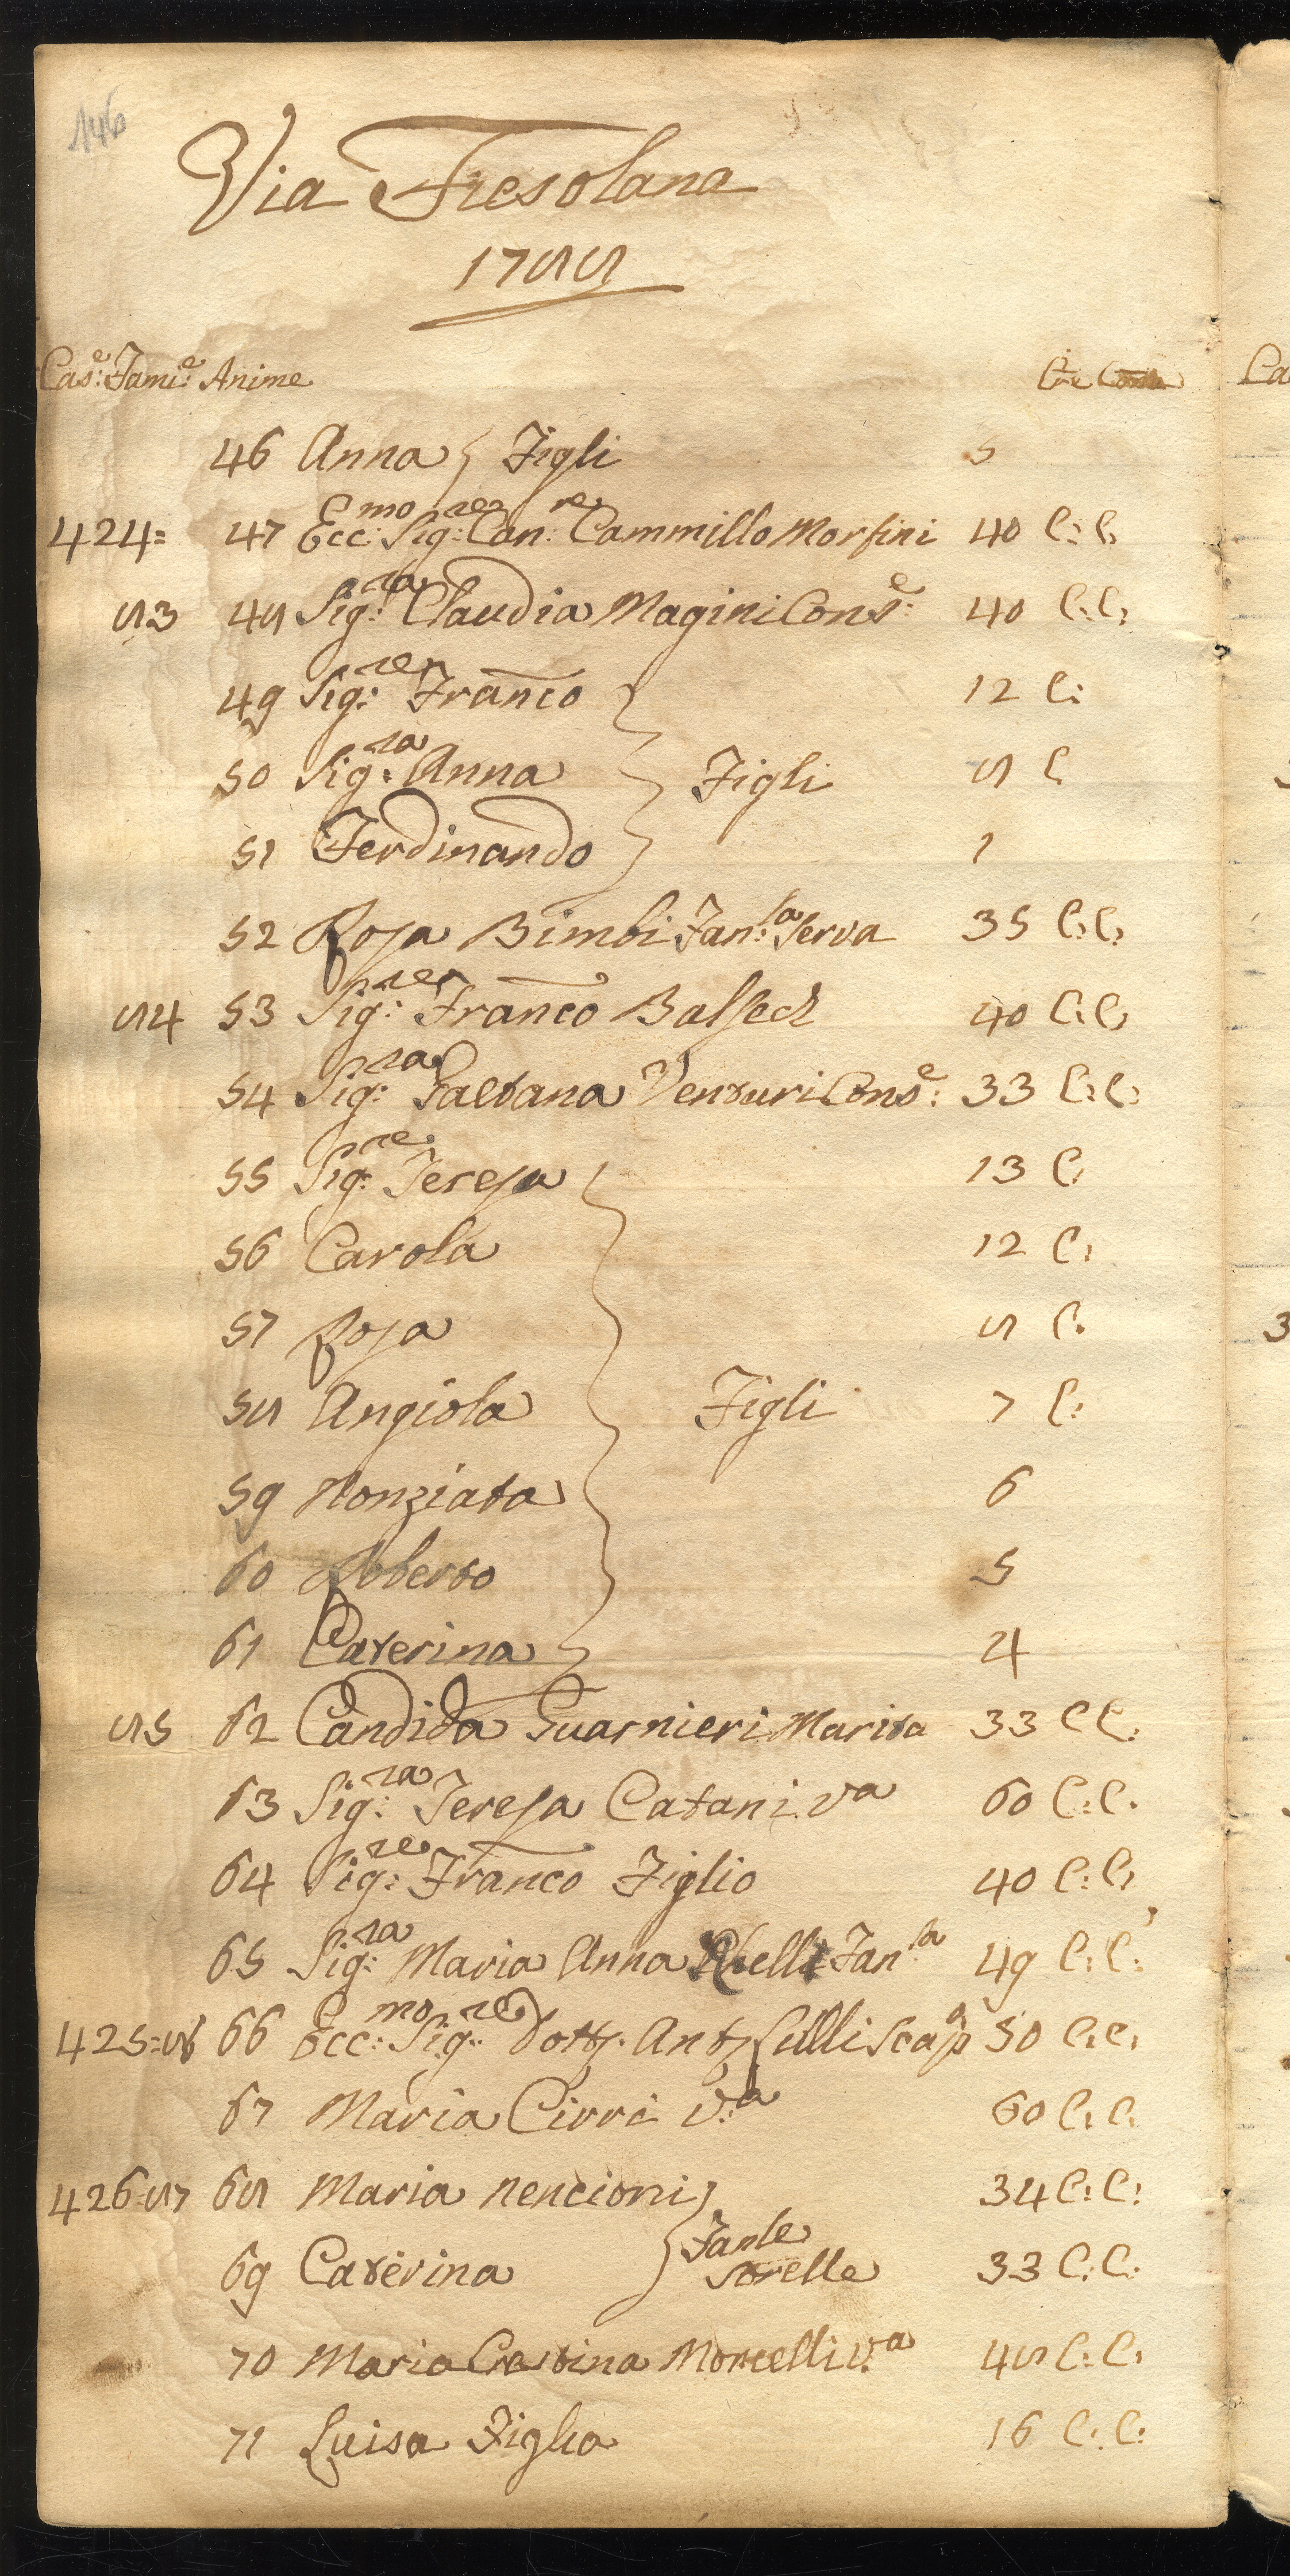 146
Via Fiesolana
1788
Cas:e Fami:e Anime
46 Anna } Figli 5
424= 47 Ecc:mo Sig:re Can:re Cammillo Morfini 40 C: C:
83 48 Sig:ra Claudia Magini Cons:e 40 C: C:
49 Sig:re Franco 12 C:
50 Sig:ra Anna } Figli 8 C
51 Ferdinando 1
52 Rosa Bimbi Fan:la Serva 35 C: C:
84 53 Sig:re Franco 40 C: C:
54 Sig:ra Gaetana Venturi Cons:e 33 C: C:
55 Sig:re Teresa 13 C:
56 Carola 12 C:
57 Rosa 8 C:
58 Angiola } Figli 7 C:
59 Nonziata 6
60 Roberto 5
61 Caterina 4
85 62 Candida Guarnieri Marita 33 C C:
63 Sig:ra Teresa Catani va 60 C: C:
64 Sig:re Franco Figlio 40 C: C:
65 Sig:ra Maria Anna Fan:la 49 C: C:
425=86 66 Ecc:mo Sig:re Dott: Ant: Lulli 50 C: C:
67 Maria Cirri v:a 60 C: C:
426=87 68 Maria Nencioni } 34 C: C:
Fanle
69 Caterina } Sorelle 33 C: C:
70 Maria Cristina Morcelli V:a 48 C: C:
71 Luisa Figlia 16 C: C: